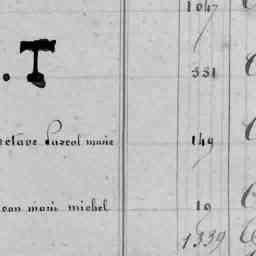 1047
. T
331
octave Pascal marie 149
jean marie michel 10
1339